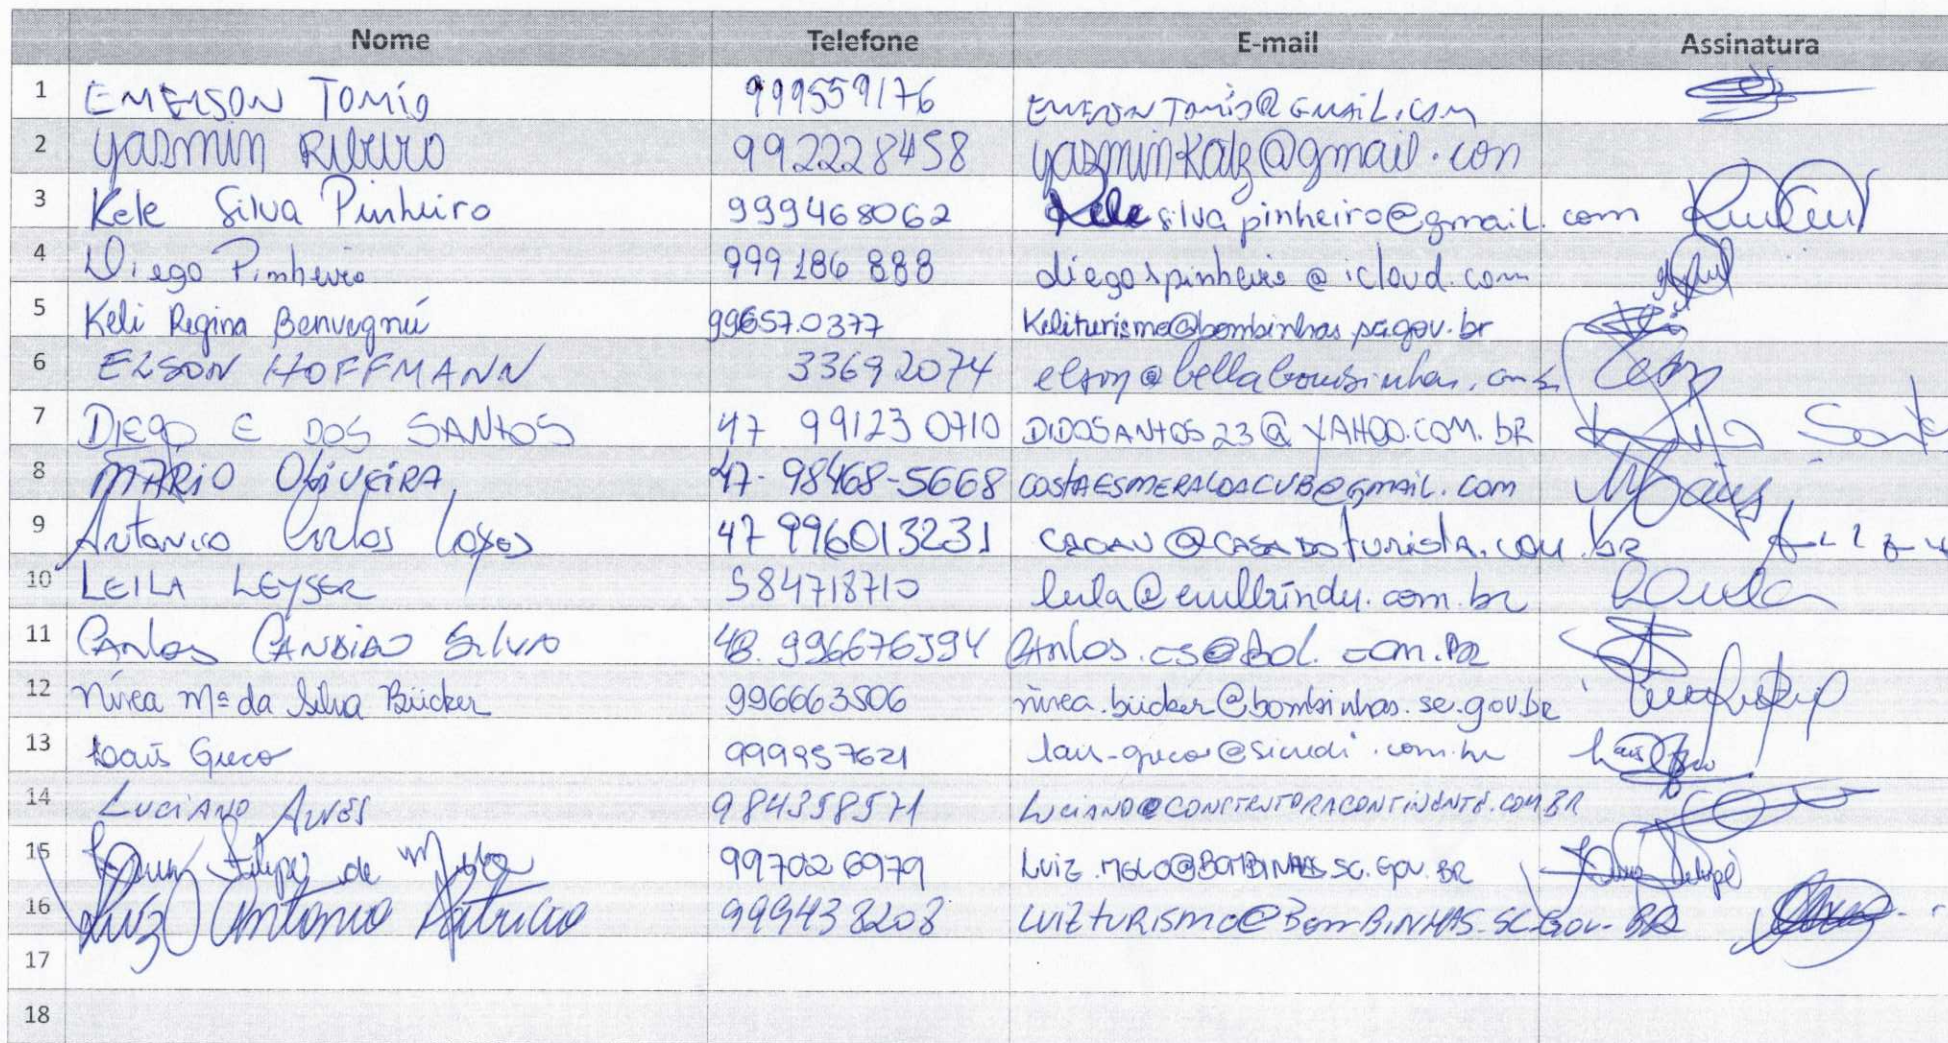 Nome Telefone E-mail Assinatura
1 EMERSON TOMÍO 999559176 EMERSONTOMÍO@GMAIL.COM
2 Yasmin Ribeiro 992228458 yasminkatz@gmail.con
3 Kele Silva Pinheiro 999468062 Kelesilvapinheiro@gmail.com
4 Diego Pinheiro 999186888 diegospinheiro@icloud.com
5 Keli Regina Benvegnú 996570377 Keliturismo@bombinhas.sc.gov.br
6 ELSON HOFFMANN 33692074 elson@bellabombinhas.
7 DIEGO E DOS SANTOS 47 991230710 DIDOSANTOS23@YAHOO.COM.BR
8 MÁRIO OLIVEIRA 47-98468-5668 COSTAESMERALDACVB@GMAIL.COM
9 Antonio Carlos Lopes 47 996013231 @CASADOTURISTA.COM.br
10 LEILA LEYSER 984718710
11 Carlos CANDIDO Silva 48.996676394 CARLOS.CS@BOL.COM.BR
12 Nívea Mª da Silva Bücker 996663506 nivea.bücker@bombinhas.sc.gov.br
13 Laís Greco 999957621 lais-greco@sicredi.com.br
14 LUCIANO ALVES 984358571 LUCIANO@CONSTRUTORACONTINENTE.COM.BR
15 Filipe de Melo 997026979 LUIZ.MELO@BOMBINHAS.SC.GOV.BR
16 Luiz Antonio Patricio 999438208 LUIZTURISMO@BOMBINHAS.SC.GOV.BR
17
18